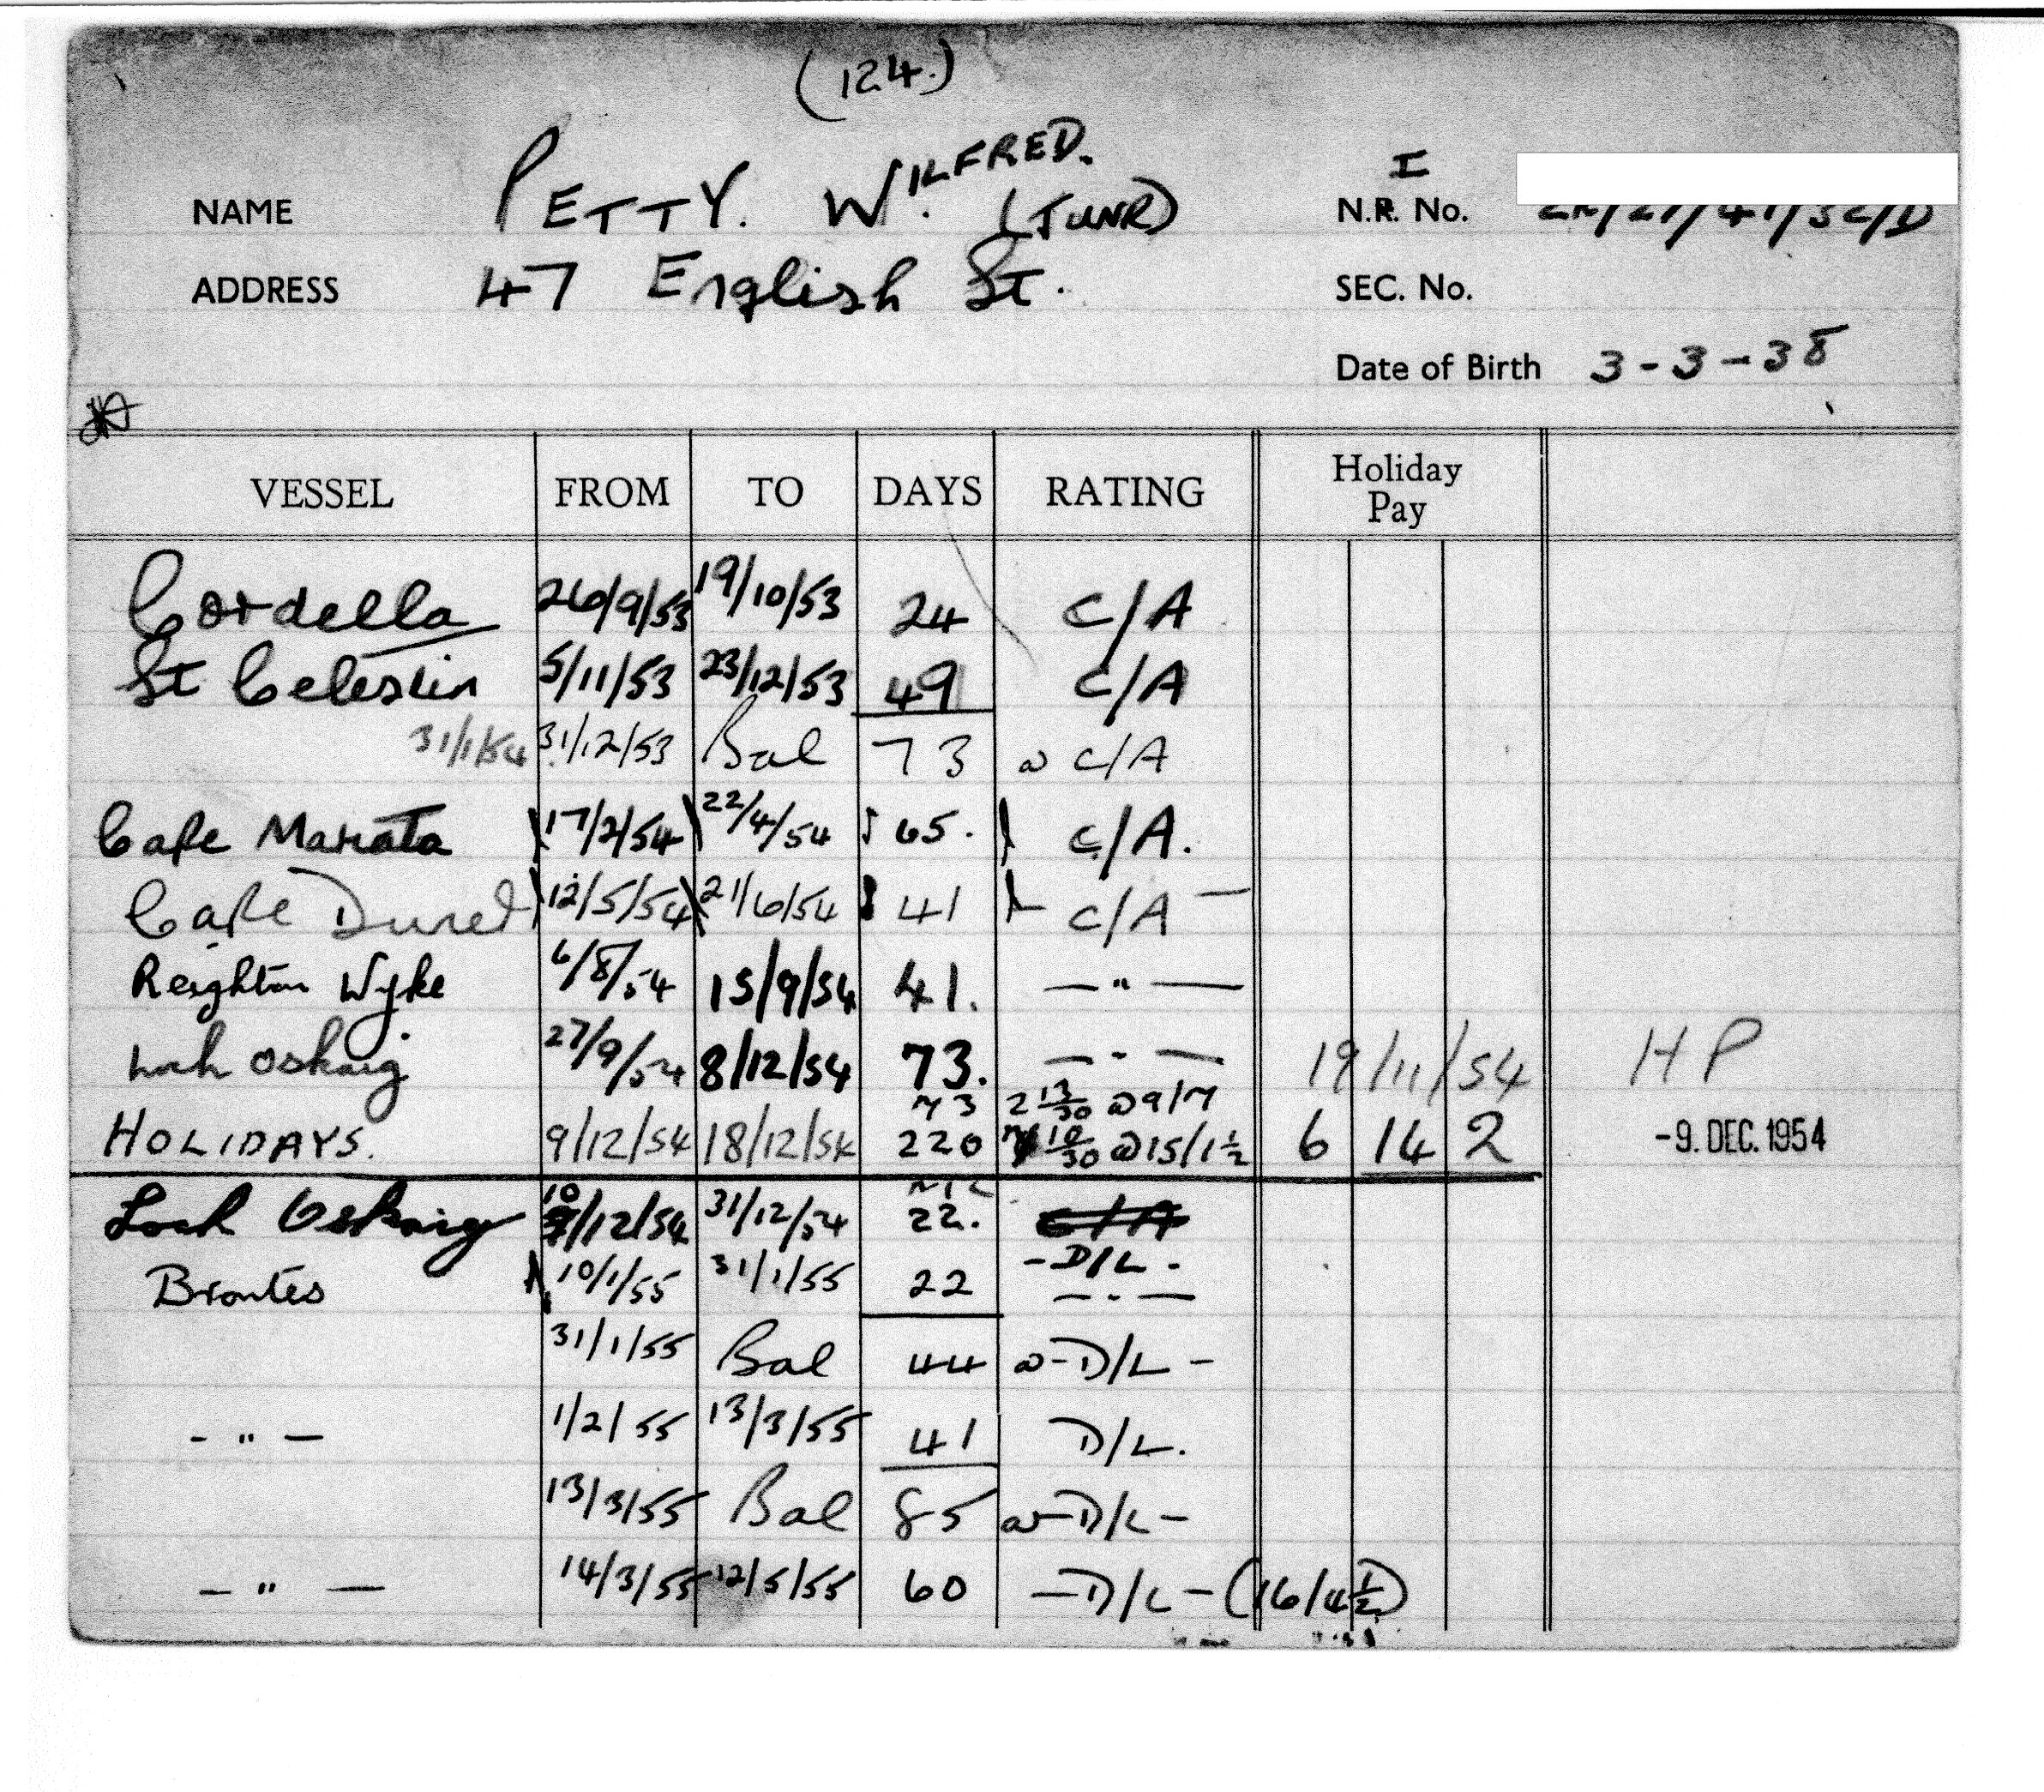 (124.)
NAME PETTY. WILFRED. (JUNR) I N.R. No.
ADDRESS 47 English St. SEC. No.
Date of Birth 3-3-38
VESSEL FROM TO DAYS RATING Holiday Pay
Cordella 26/9/53 19/10/53 24 C/A
St Celestin 5/11/53 23/12/53 49 C/A
31/1/54 31/12/53 Bal 73 @ C/A
Cape Mariato 17/2/54 22/4/54 65. C/A.
Cape Duned 12/5/54 21/6/54 41 C/A —
Reighton Wyke 6/8/54 15/9/54 41. — " —
Loch Oskaig 27/9/54 8/12/54 73. — " — 19/11/54 HP
73 2 13/30 @ 9/7
HOLIDAYS. 9/12/54 18/12/54 220 7 10/30 @ 15/1½ 6 14 2 -9. DEC. 1954
Loch Oskaig 10/12/54 31/12/54 22. C/A
- D/L -
Brontes 10/1/55 31/1/55 22 — " —
31/1/55 Bal 44 @ - D/L -
- " - 1/2/55 13/3/55 41 D/L.
13/3/55 Bal 85 @ - D/L -
- " - 14/3/55 12/5/55 60 - D/L - (16/4½)